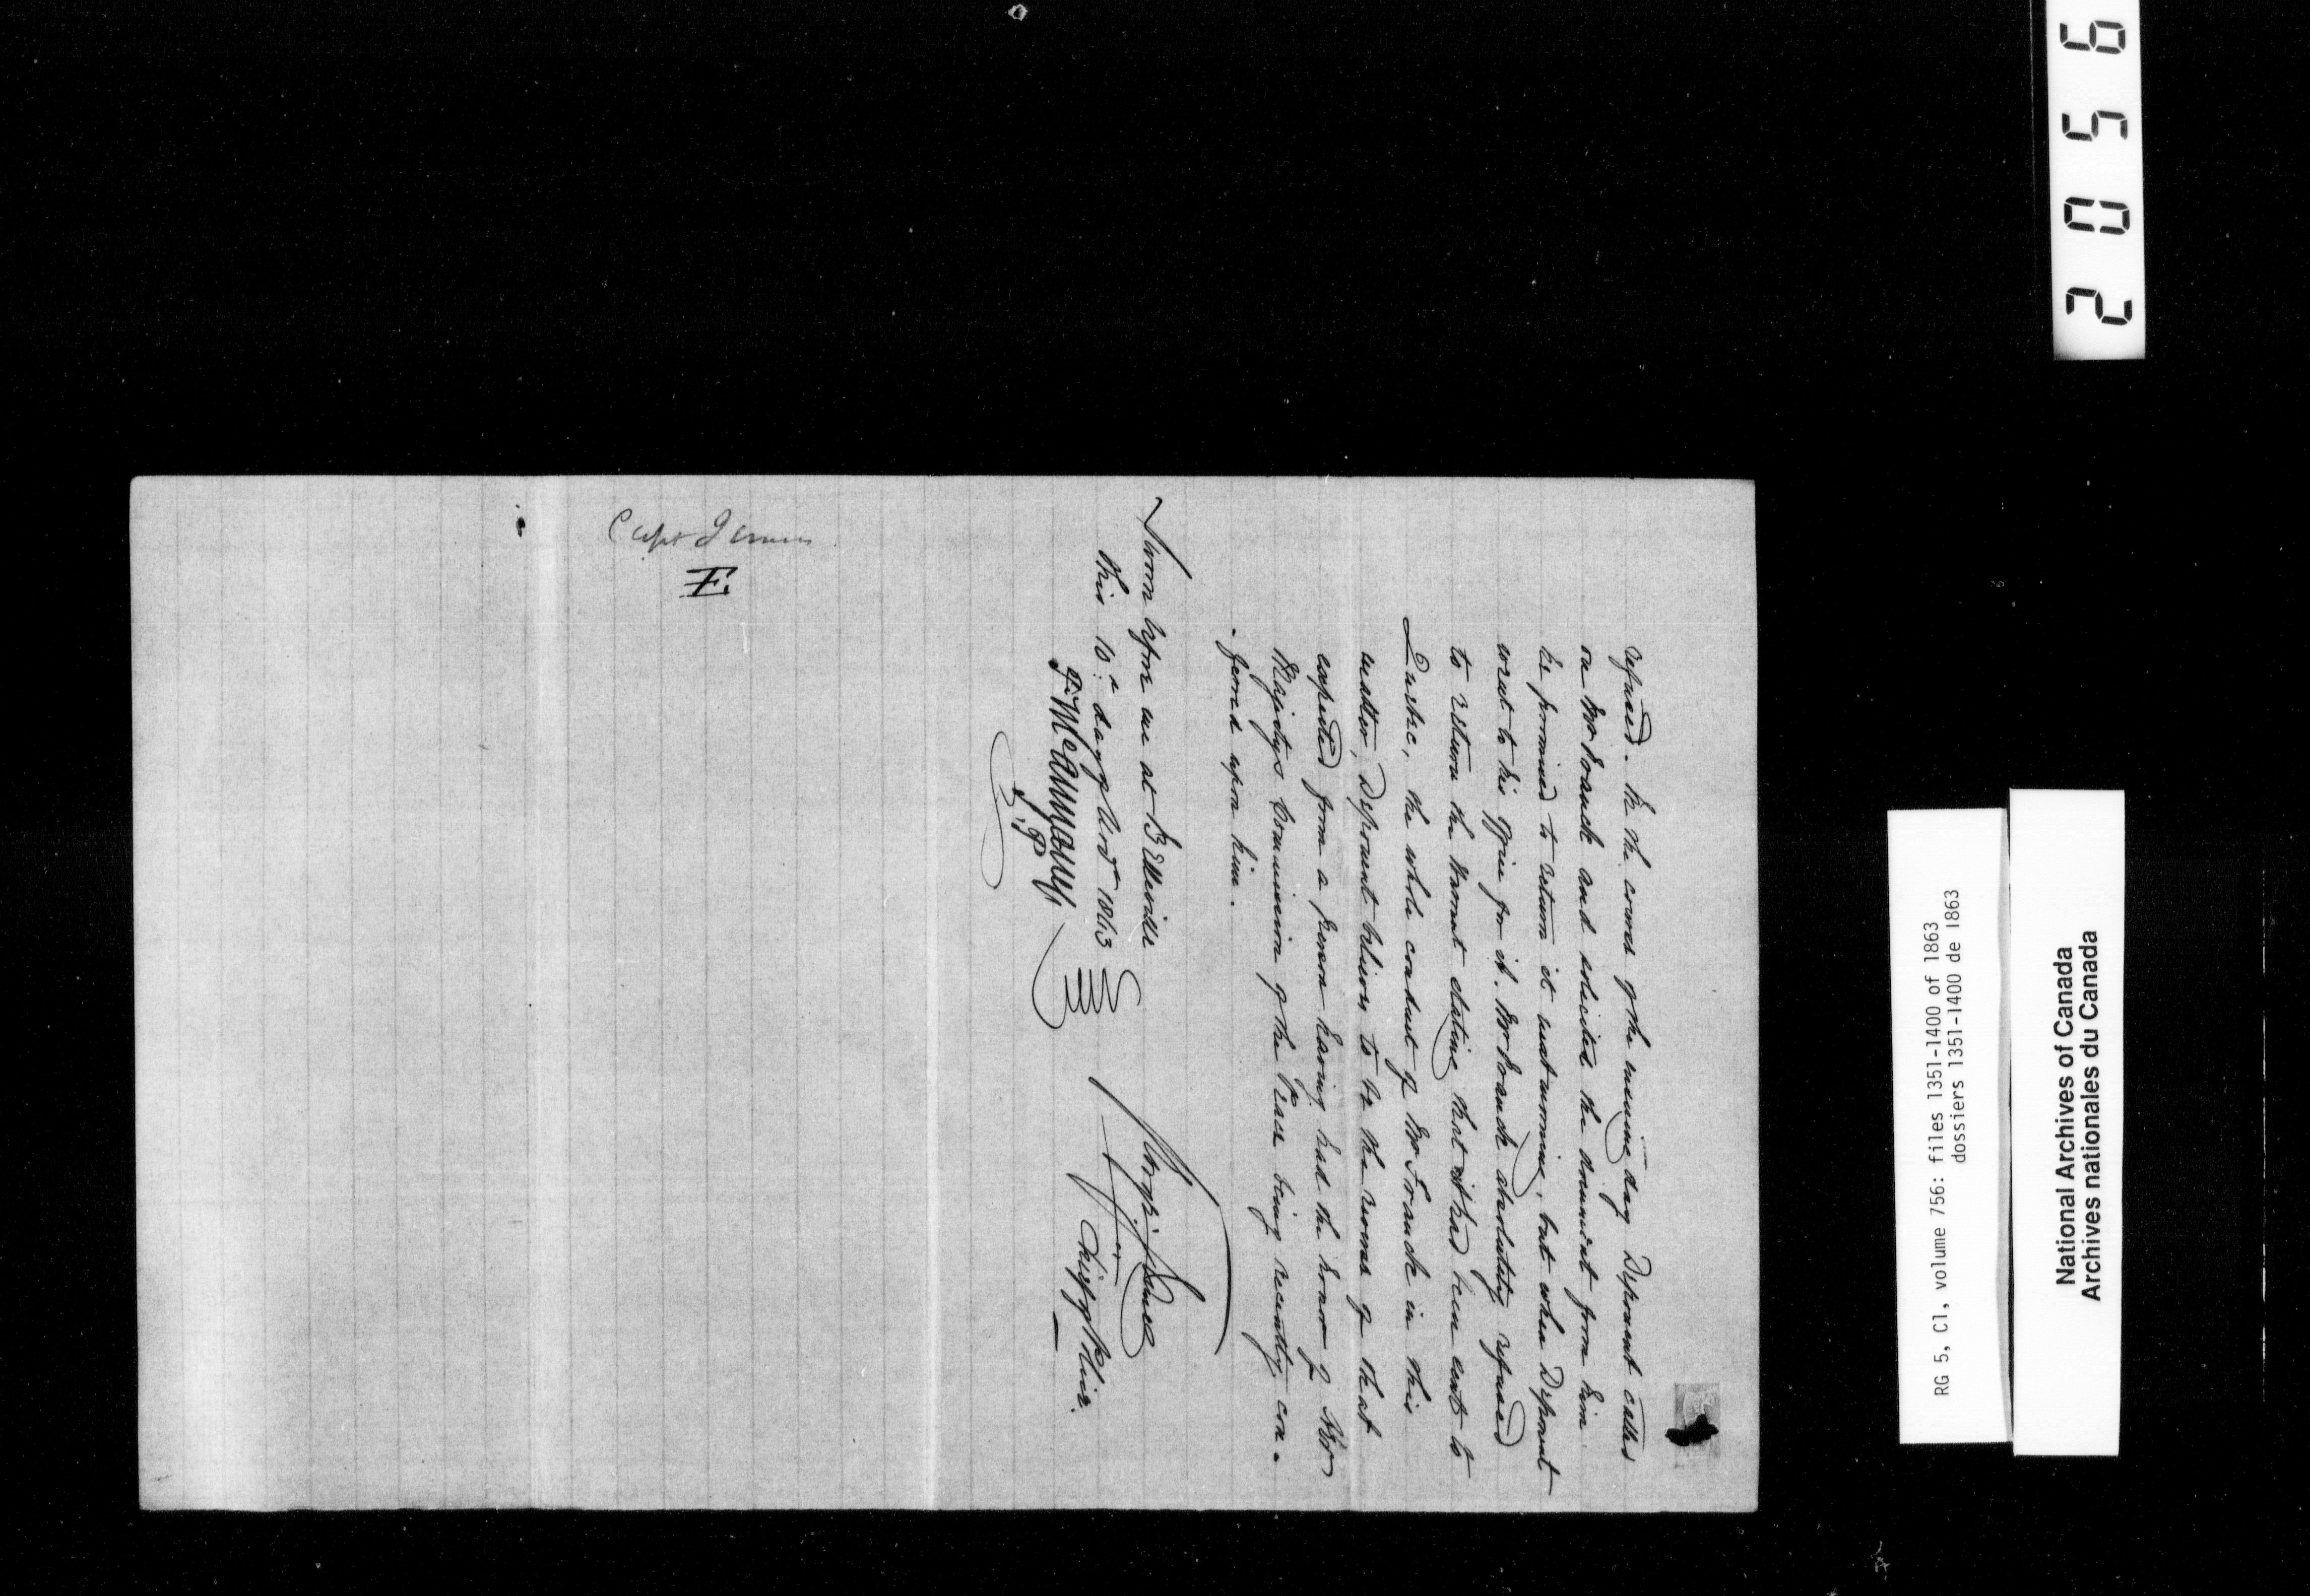 refused. In the course of the ensuing day Deponent called
on Mr Franck and solicited the document from him.
he promised to return it next morning, but when Deponent
went to his office for it. Mr Franck absolutely refused
to return the Warrant stating that it had been sent to
Quebec, the whole conduct of Mr Franck in this
matter, Deponent believes to be the reverse of that
expected from a person having had the honor of Her
Majestys Commission of the Peace being recently con-
-ferred upon him.
Sworn before me at Belleville
this 10th day of Octr 1863
J.P.
Chief of Police.
Capt
E.
2056
RG 5, C1, volume 756: files 1351-1400 of 1863
dossiers 1351-1400 de 1863
National Archives of Canada
Archives nationales du Canada